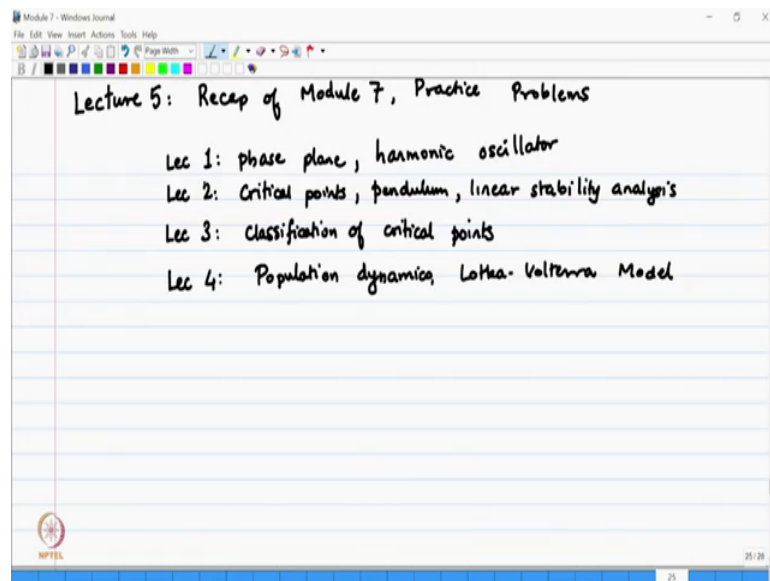 Module 7 - Windows Journal
File Edit View Insert Actions Tools Help
Page Width
B I
Lecture 5: Recap of Module 7, Practice Problems
Lec 1: phase plane, harmonic oscillator
Lec 2: Critical points, pendulum, linear stability analysis
Lec 3: Classification of critical points
Lec 4: Population dynamics, Lotka-Volterra Model
NPTEL
25/28
25